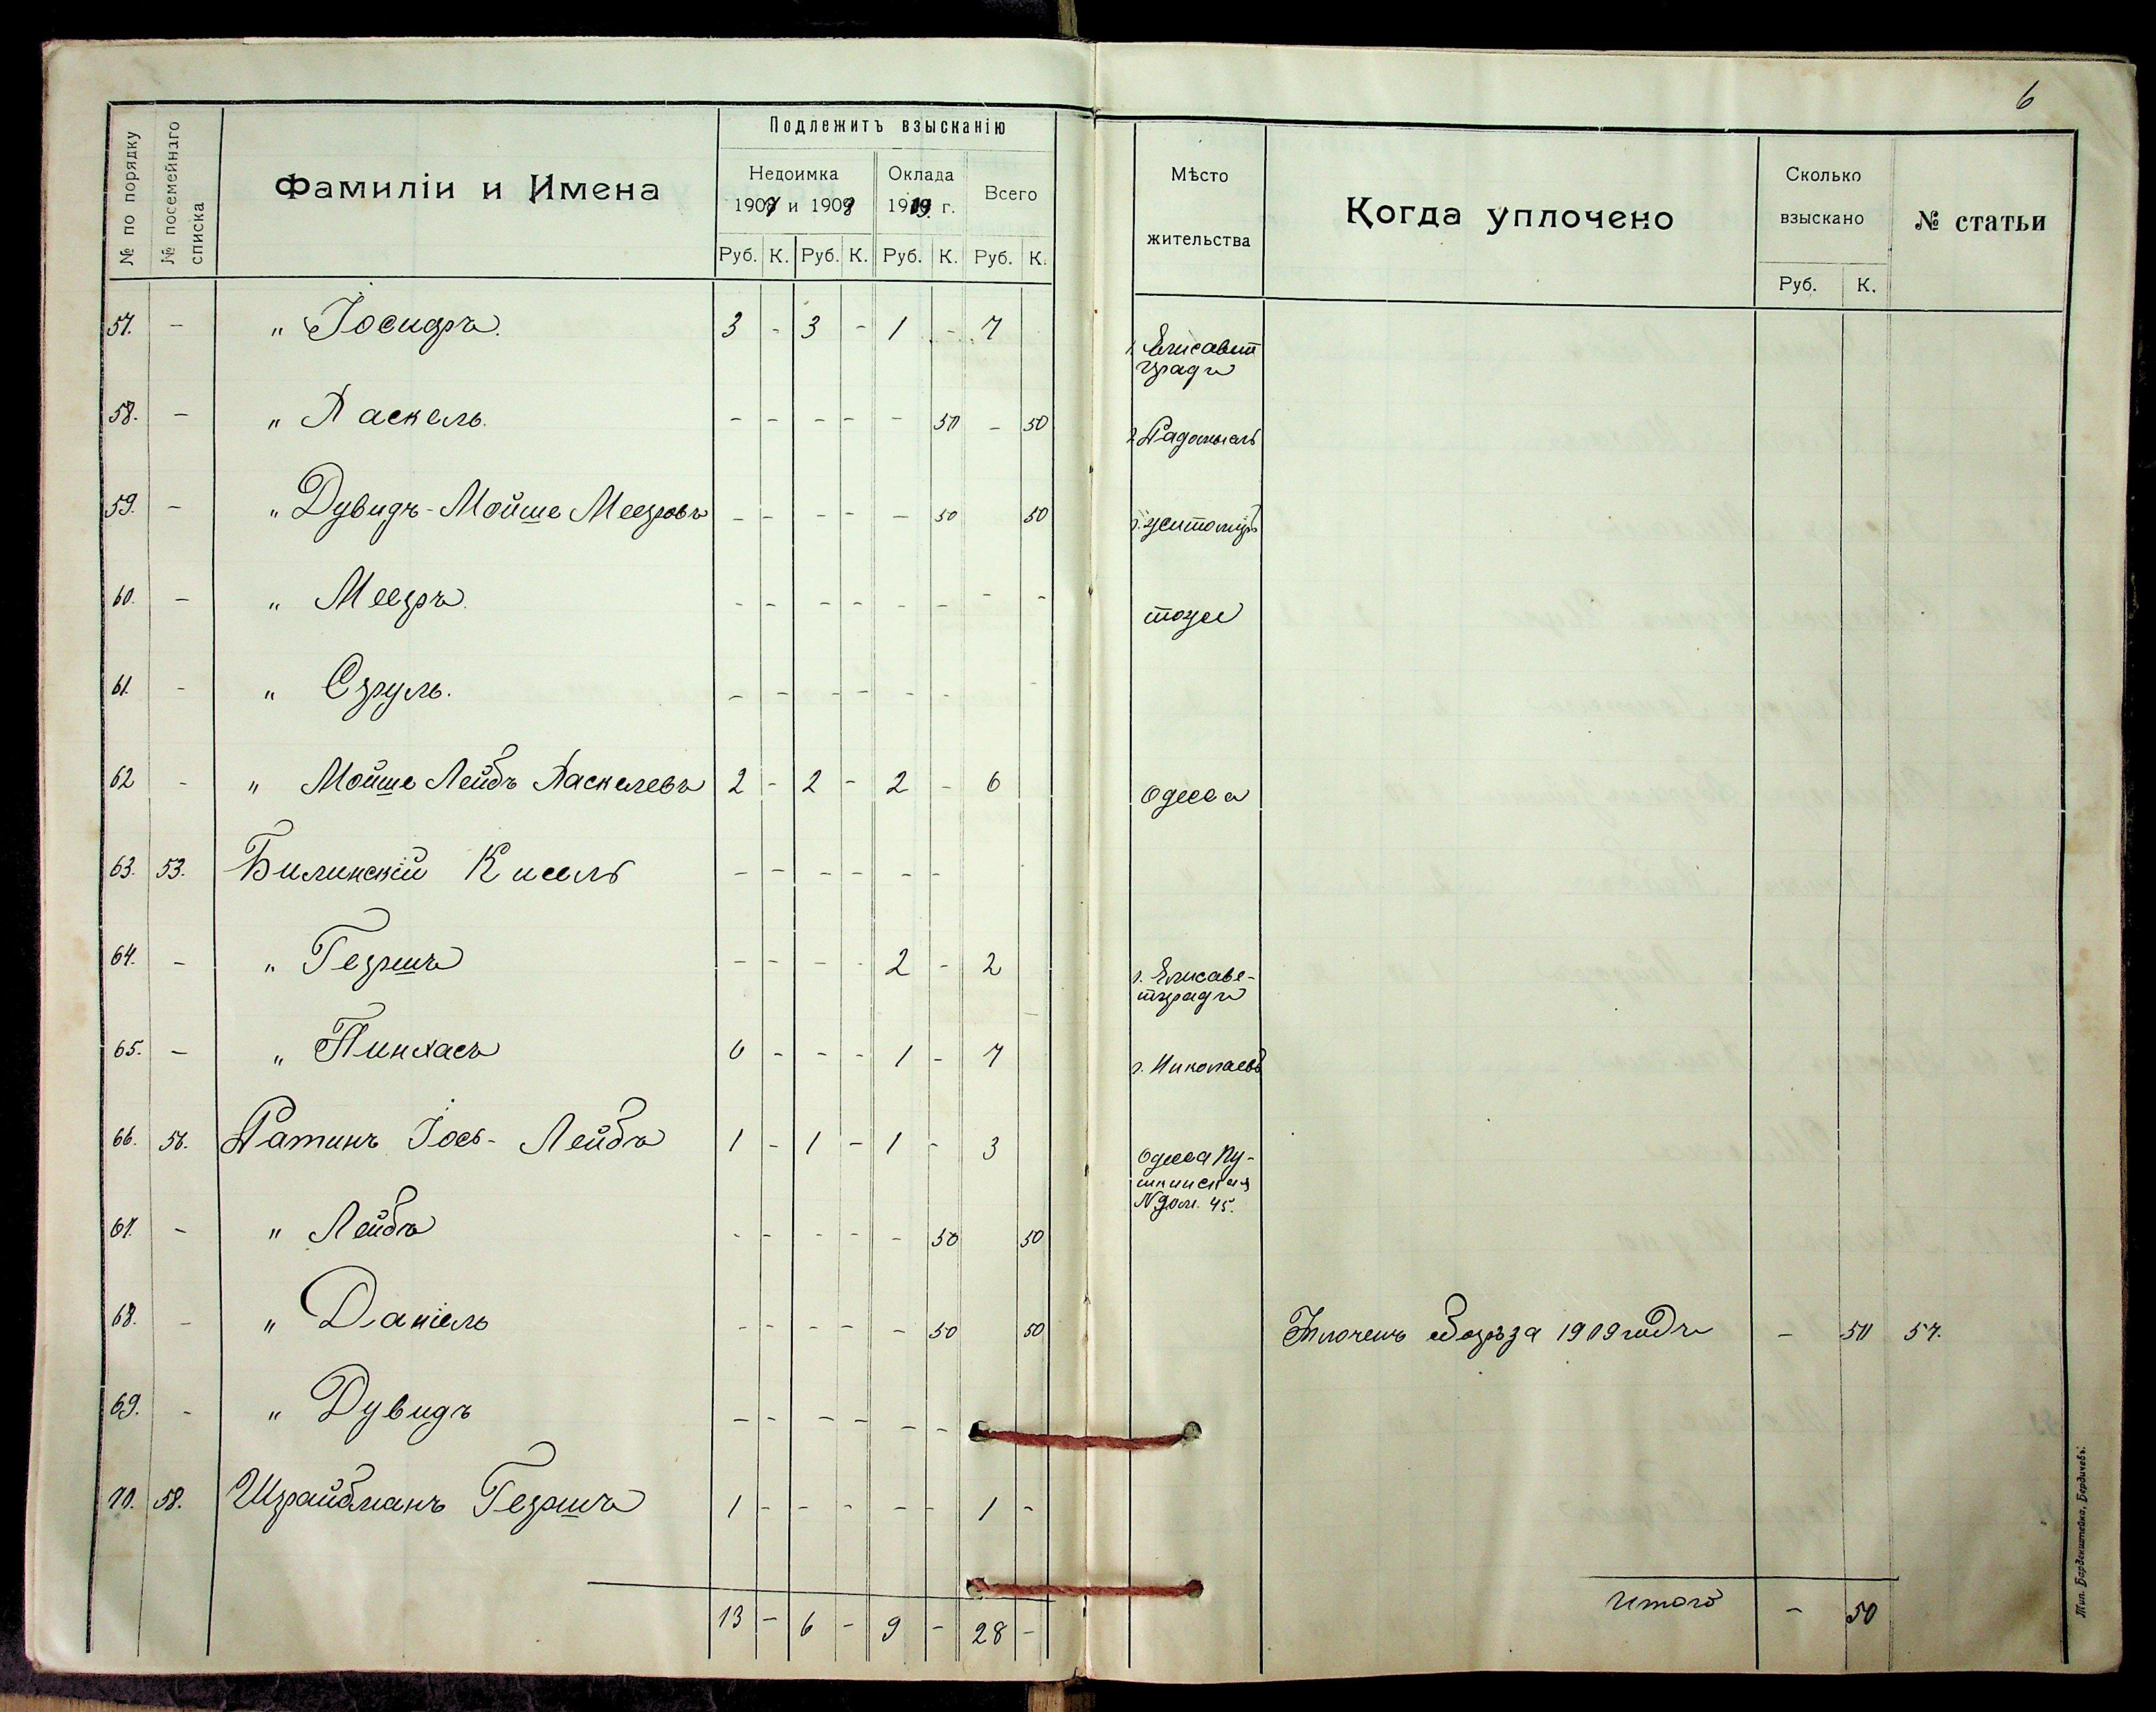 6
№ по порядку
№ посемейнаго списка
Фамиліи и Имена
Подлежитъ взысканію
Недоимка
1907 и 1908
Оклада
1909 г.
Всего
Руб. К. Руб. К. Руб. К. Руб. К.
Мѣсто
жительства
Когда уплочено
Сколько
взыскано
Руб. К.
№ статьи
57. - " Іосифъ. 3 - 3 - 1 - 7 г. Елисавет
градъ
58. - " Паскель. - - - - - 50 - 50 г. Радомысль
59. - " Дувидъ-Мойше Мееровъ - - - - - 50 50 г. Житомиръ
60. - " Мееръ. - - - - - - - - тоже
61. - " Сруль. - - - - - - -
62 - " Мойше Лейбъ Паскелевъ 2 - 2 - 2 - 6 Одесса
63. 53. Билинскій Кисель - - - - - -
64. - " Гершъ - - - - 2 - 2 г. Елисаве-
тградъ
65. - " Пинхасъ 6 - - - 1 - 7 г. Николаевъ
66. 56. Ратинъ Іось-Лейбъ 1 - 1 - 1 - 3 Одесса Пу-
шкинская
N дом. 45.
67. - " Лейбъ - - - - - 50 50
68. - " Даніель - - - - - 50 50 сборъ за 1909 годъ - 50 57.
69. - " Дувидъ - - - - - -
70. 58. Шрайбманъ Гершъ 1 - - - - - 1 -
13 - 6 - 9 - 28 -
Итого - 50
Тип. Барденштейна, Бердичевъ.